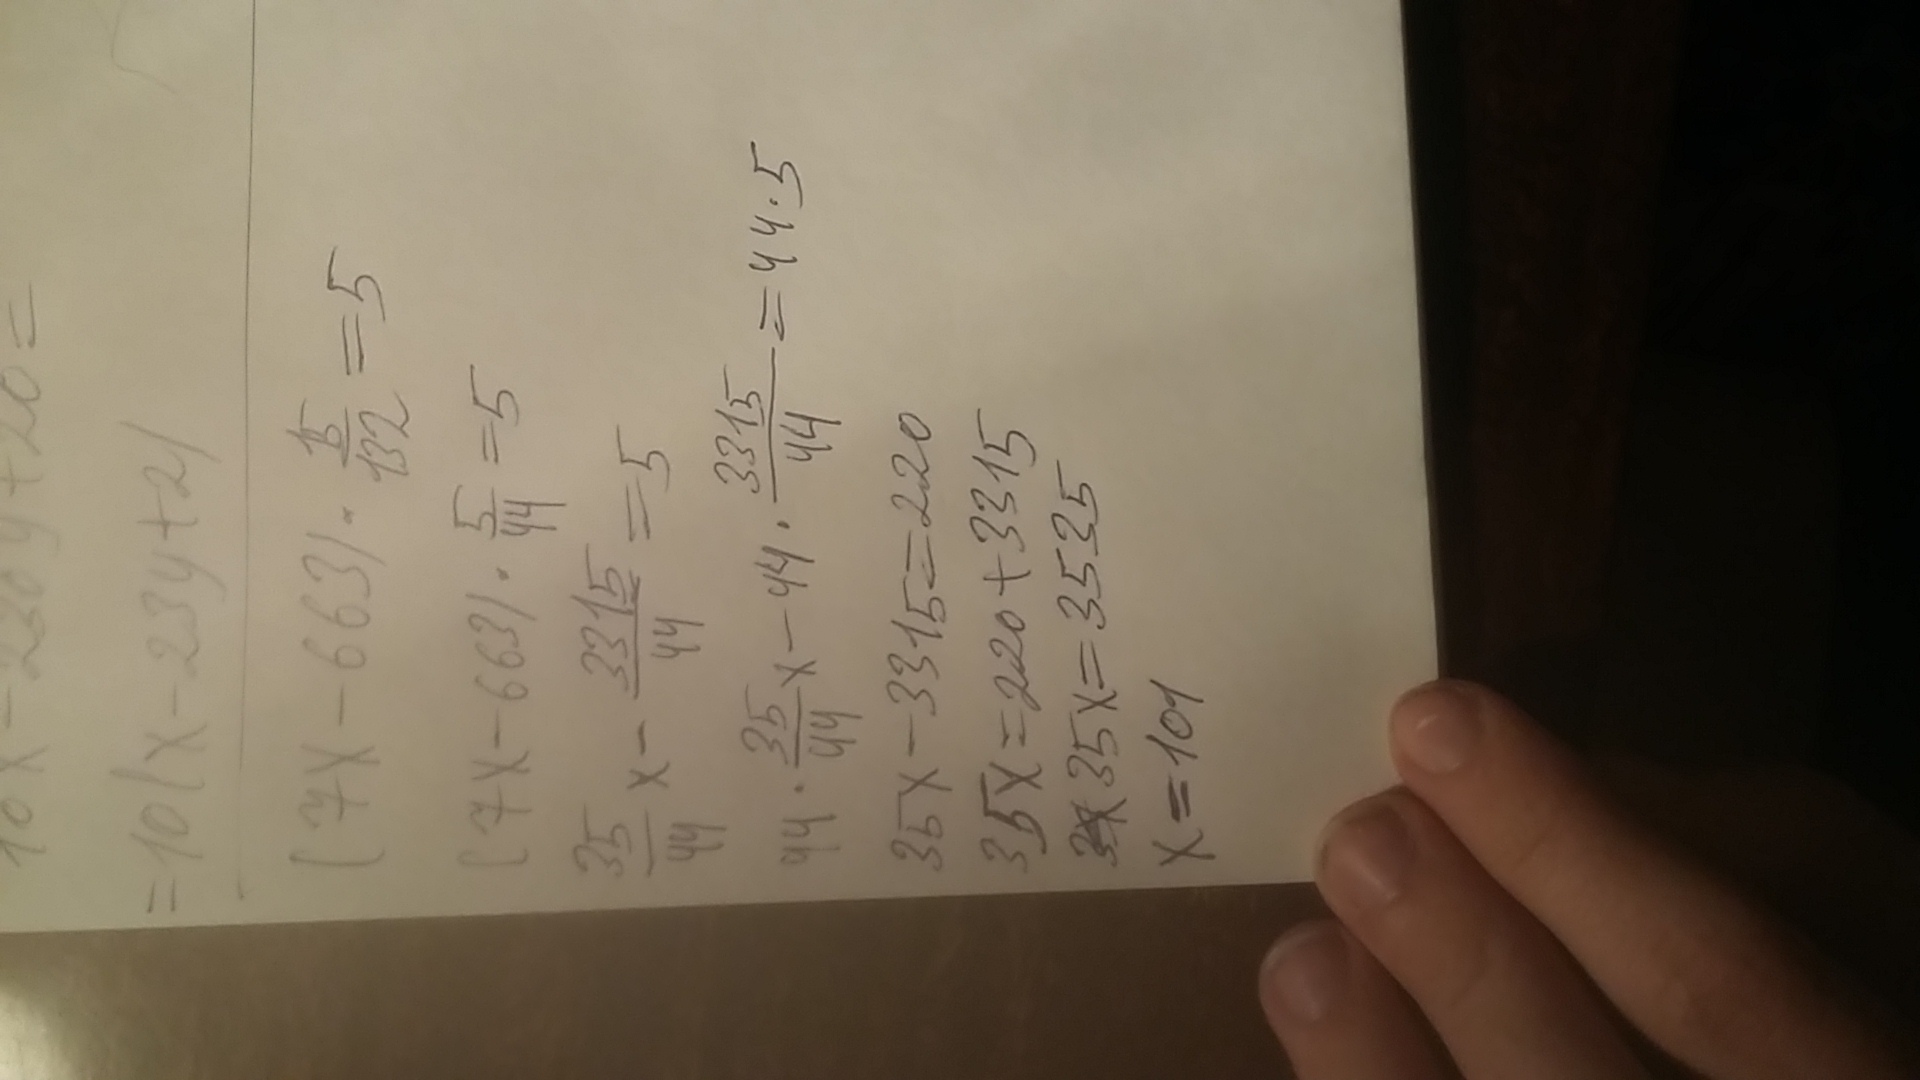 10x-230y+20=
=10(x-23y+2)
(7x-663)·15/132=5
(7x-663)·5/44=5
35/44x-3315/44=5
44·35/44x-44·3315/44=44·5
35x-3315=220
35x=220+3315
35x=3535
x=101